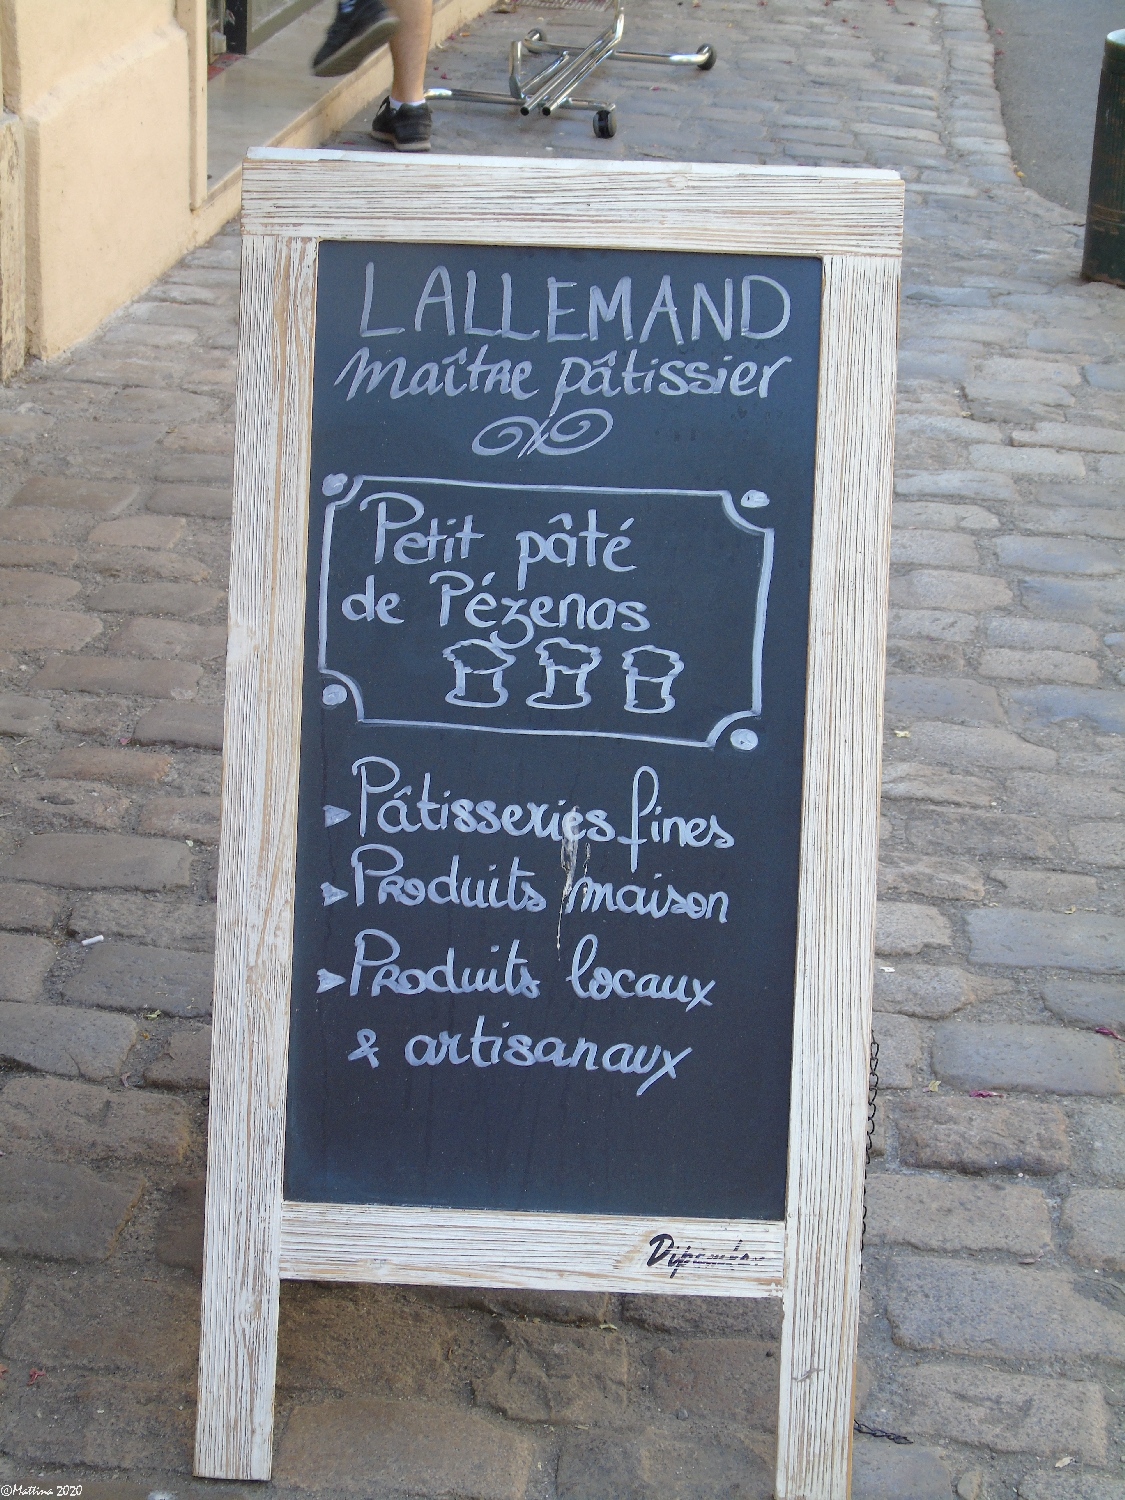 LALLEMAND
Maître pâtissier
Petit pâté
de Pézenas
Pâtisseries fines
Produits maison
Produits locaux
& artisanaux
©Mattina 2020